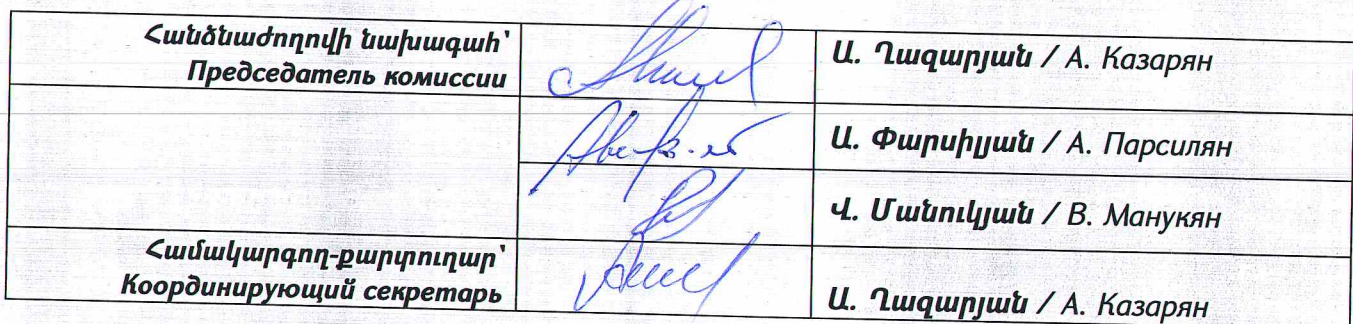 Հանձնաժողովի նախագահ՝
Председатель комиссии
Ա. Ղազարյան / А. Казарян
Ա. Փարսիլյան / А. Парсилян
Վ. Մանուկյան / В. Манукян
Համակարգող-քարտուղար՝
Координирующий секретарь
Ա. Ղազարյան / А. Казарян